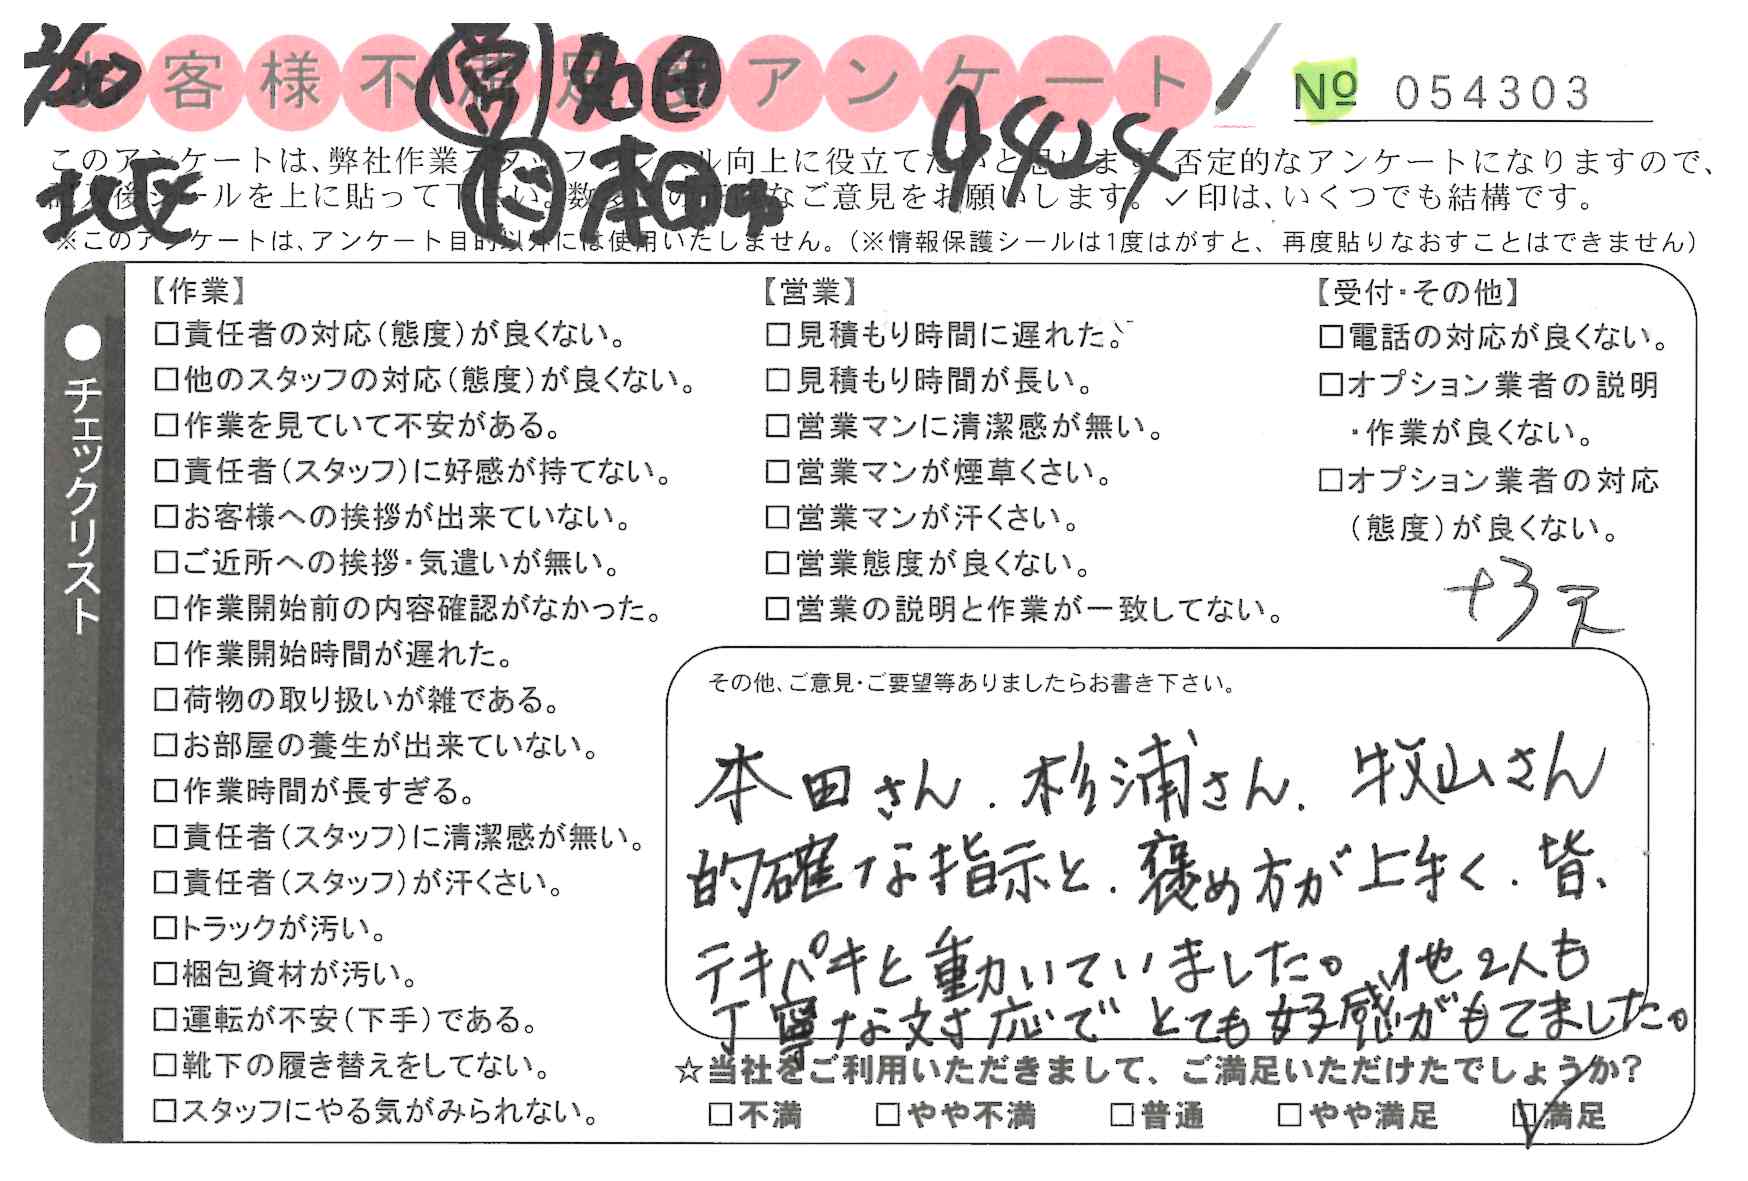 お客様不満足度アンケート
№ 054303
2/20
営 加世
北区
付 本田
9424
このアンケートは、弊社作業スタッフのレベル向上に役立てたいと思います。否定的なアンケートになりますので、
記入後シールを上に貼って下さい。数多くの正直なご意見をお願いします。✓印は、いくつでも結構です。
※このアンケートは、アンケート目的以外には使用いたしません。（※情報保護シールは1度はがすと、再度貼りなおすことはできません）
●チェックリスト
【作業】
□責任者の対応（態度）が良くない。
□他のスタッフの対応（態度）が良くない。
□作業を見ていて不安がある。
□責任者（スタッフ）に好感が持てない。
□お客様への挨拶が出来ていない。
□ご近所への挨拶・気遣いが無い。
□作業開始前の内容確認がなかった。
□作業開始時間が遅れた。
□荷物の取り扱いが雑である。
□お部屋の養生が出来ていない。
□作業時間が長すぎる。
□責任者（スタッフ）に清潔感が無い。
□責任者（スタッフ）が汗くさい。
□トラックが汚い。
□梱包資材が汚い。
□運転が不安（下手）である。
□靴下の履き替えをしてない。
□スタッフにやる気がみられない。
【営業】
□見積もり時間に遅れた。
□見積もり時間が長い。
□営業マンに清潔感が無い。
□営業マンが煙草くさい。
□営業マンが汗くさい。
□営業態度が良くない。
□営業の説明と作業が一致してない。
【受付・その他】
□電話の対応が良くない。
□オプション業者の説明
・作業が良くない。
□オプション業者の対応
（態度）が良くない。
+3
その他、ご意見・ご要望等ありましたらお書き下さい。
本田さん．杉浦さん．牧山さん
的確な指示と．褒め方が上手く．皆、
テキパキと動いていました。他2人も
丁寧な対応でとても好感がもてました。
☆当社をご利用いただきまして、ご満足いただけたでしょうか？
□不満 □やや不満 □普通 □やや満足 ☑満足